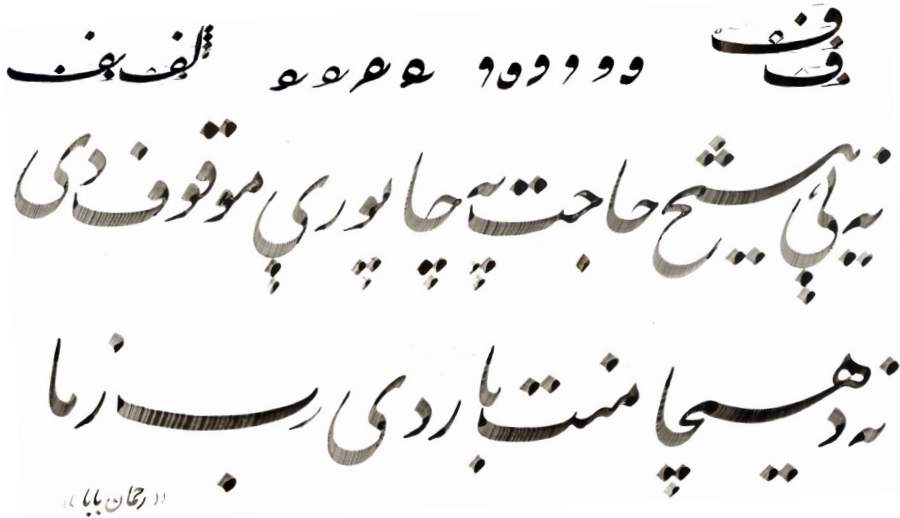 ف ف و و و و و و و لف بف
نه یې هیڅ حاجت په چا پورې موقوف دی
نه د هیچا منت بار دی رب زما
((رحمان بابا))